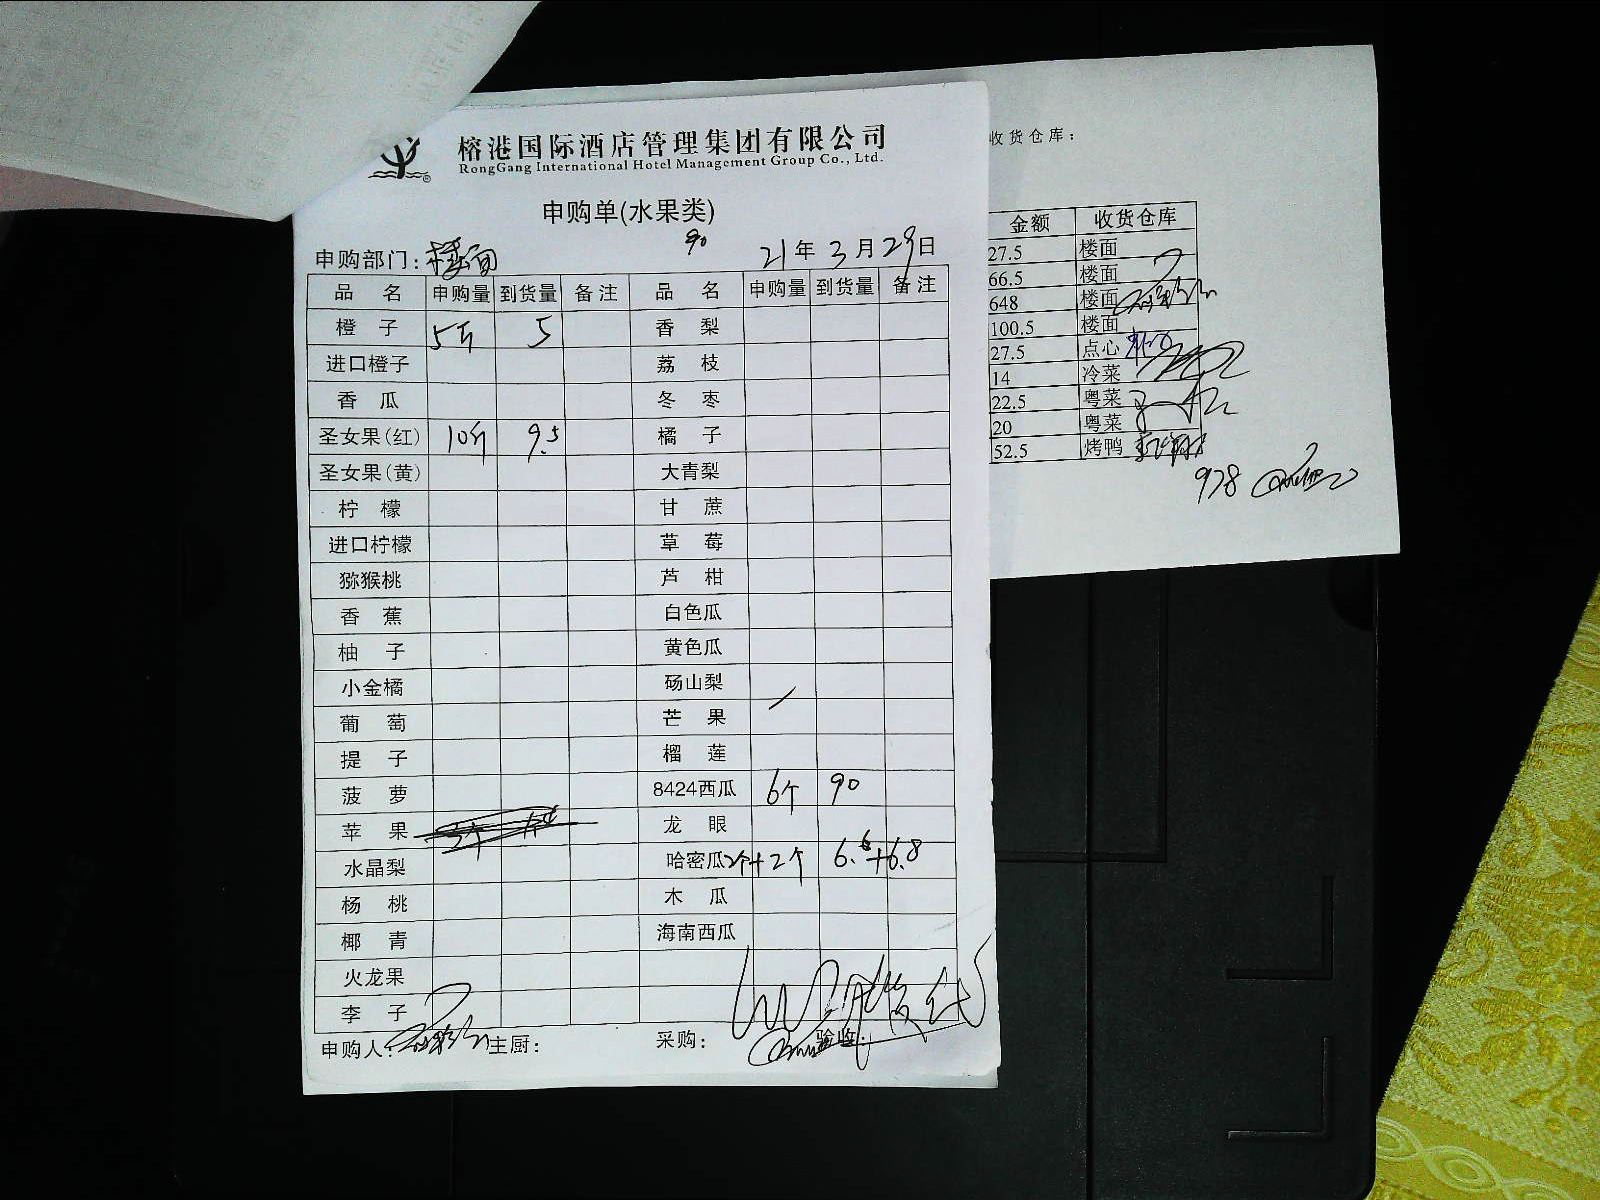 榕港国际酒店管理集团有限公司
RongGang International Hotel Management Group Co., Ltd.
申购单(水果类)
90
申购部门：楼面 21年3月29日
品名 申购量 到货量 备注 品名 申购量 到货量 备注
橙子 5斤 5 香梨
进口橙子 荔枝
香瓜 冬枣
圣女果(红) 10斤 9.5 橘子
圣女果(黄) 大青梨
柠檬 甘蔗
进口柠檬 草莓
猕猴桃 芦柑
香蕉 白色瓜
柚子 黄色瓜
小金橘 砀山梨
葡萄 芒果
提子 榴莲
菠萝 8424西瓜 6个 90
苹果 龙眼
水晶梨 哈密瓜 2个+2个 6.6+6.8
杨桃 木瓜
椰青 海南西瓜
火龙果
李子
申购人： 主厨： 采购： 验收：
收货仓库：
金额 收货仓库
27.5 楼面
66.5 楼面
648 楼面
100.5 楼面
27.5 点心
14 冷菜
22.5 粤菜
20 粤菜
52.5 烤鸭
978